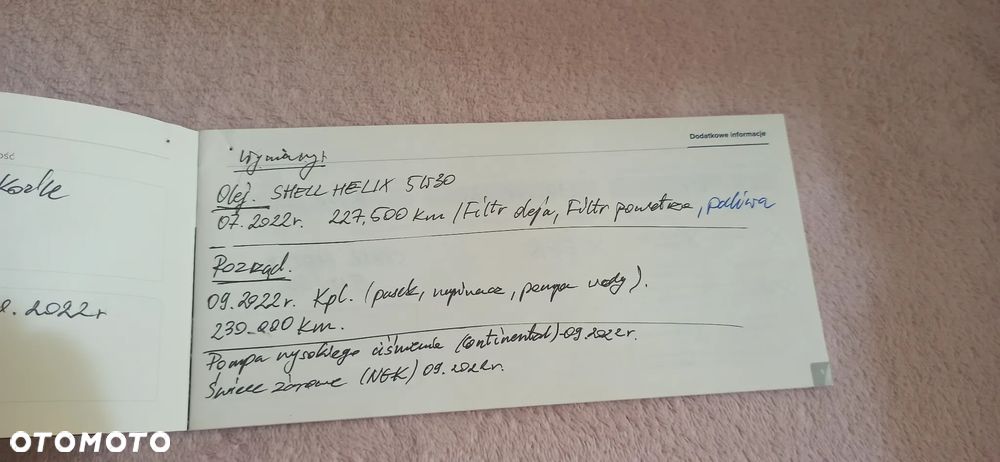 ość
Kozłe
2022r
Dodatkowe informacje
Wymiany:
Olej. SHELL HELIX 5W30
07.2022r. 227,600 km / Filtr oleju, Filtr powietrza, paliwa
Rozrząd.
09.2022r. Kpl. (pasek, napinacz, pompa wody).
230.000 km.
Pompa wysokiego ciśnienia (Continental) - 09.2022r.
Świece żarowe (NGK) 09.2022r.
OTOMOTO